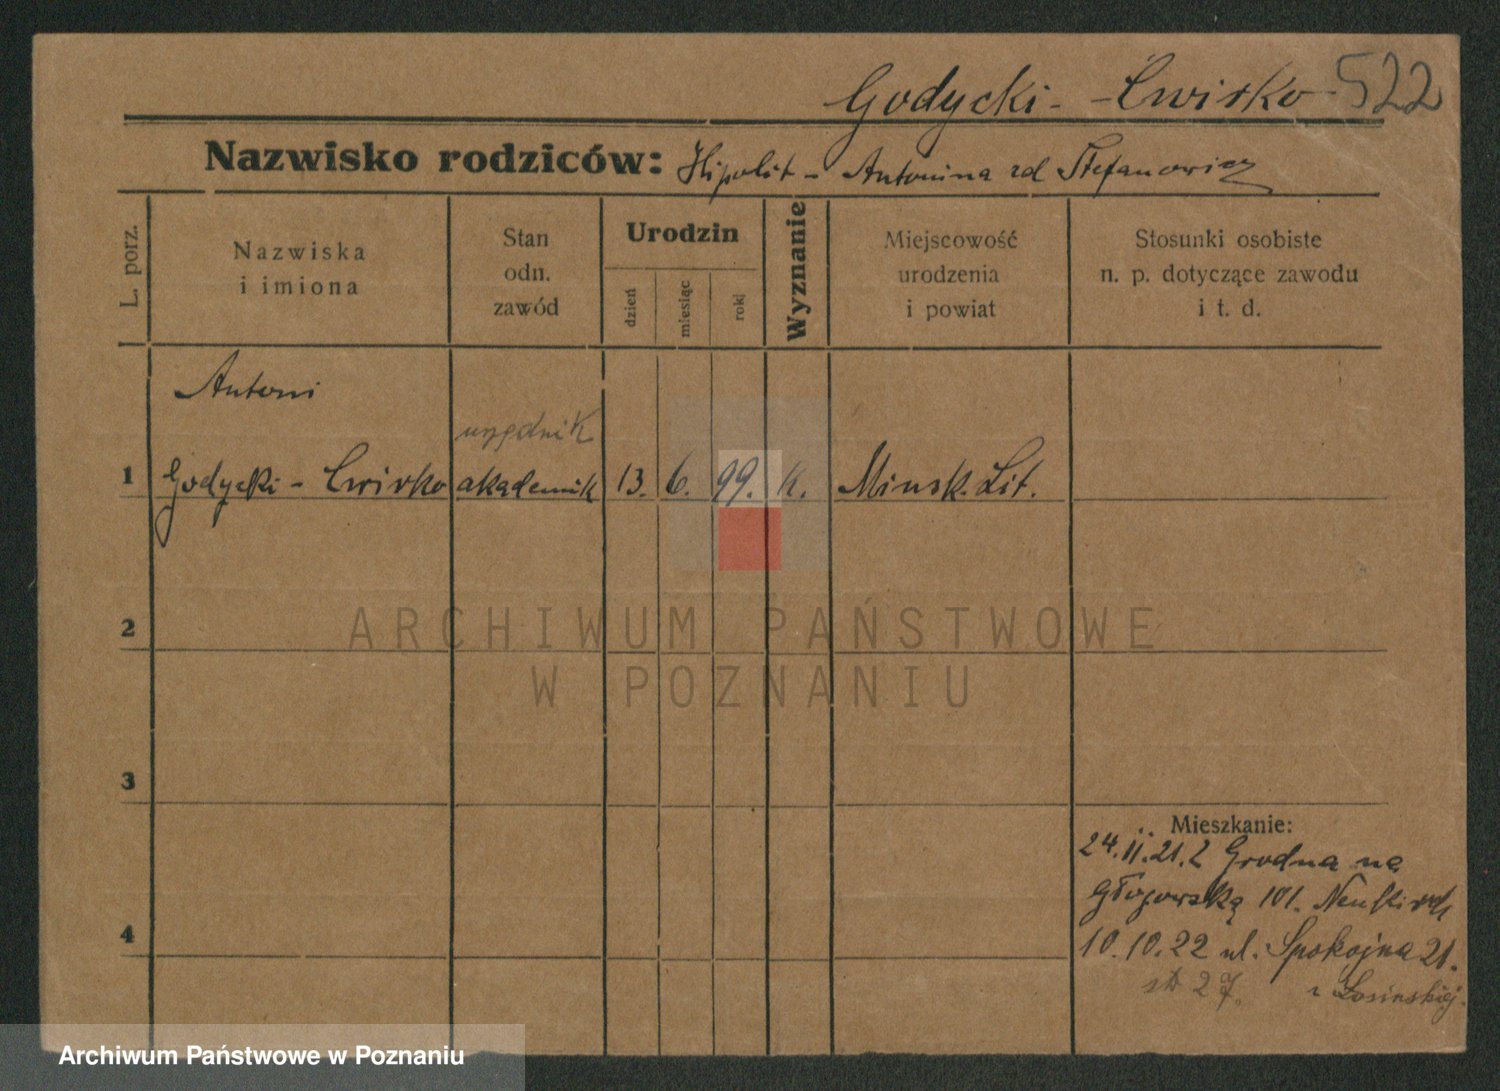 Godycki - Ćwirko 522
Nazwisko rodziców: Hipolit - Antonina zd Stefanowicz
L. porz.
Nazwiska
i imiona
Stan
odn.
zawód
Urodzin
dzień
miesiąc
rok
Wyznanie
Miejscowość
urodzenia
i powiat
Stosunki osobiste
n. p. dotyczące zawodu
i t. d.
Antoni
urzędnik
1 Godycki - Cwirko akademik 13. 6. 99. k. Minsk. Lit.
2
ARCHIWUM PAŃSTWOWE
W POZNANIU
3
Mieszkanie:
24.II.21. z Grodna na
Głogowską 101.
4
10.10.22 ul. Spokojna 21.
27. Łosinskiej.
Archiwum Państwowe w Poznaniu